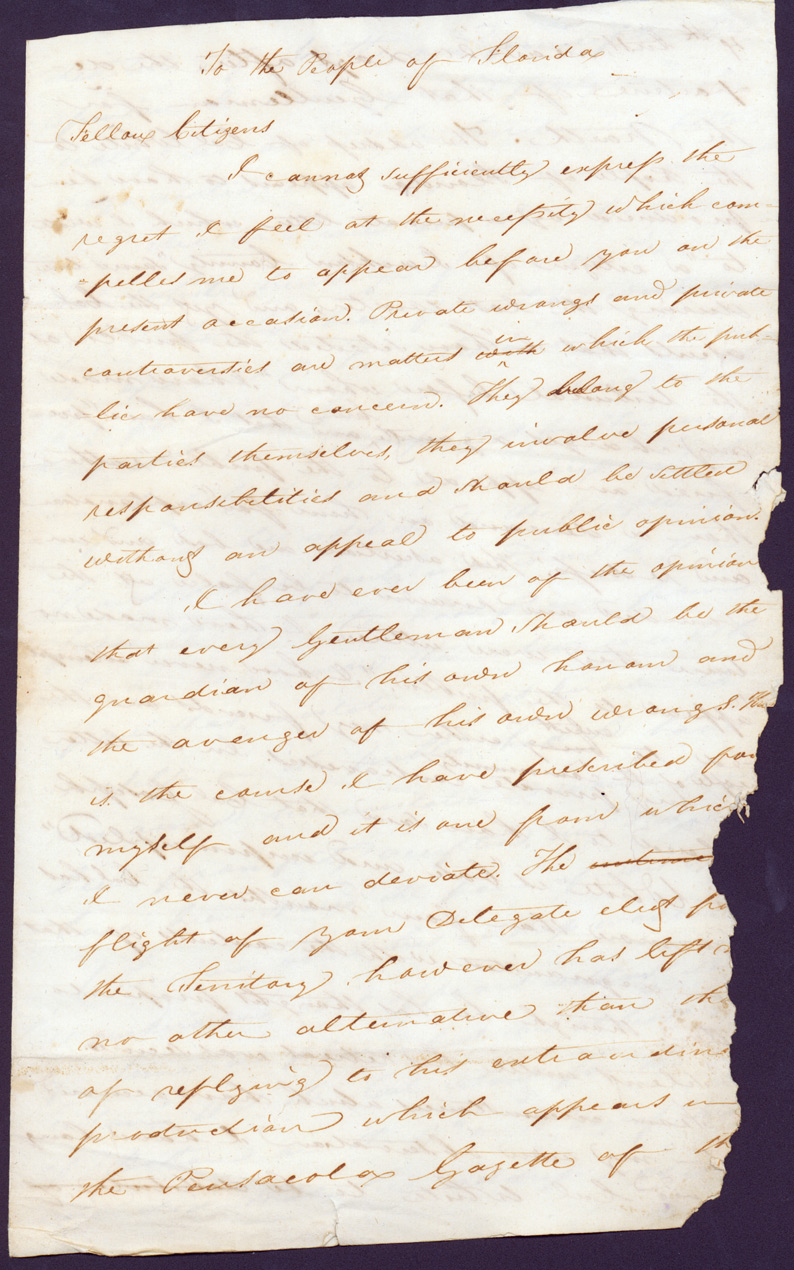 To the People of Florida
Fellow Citizens
I cannot sufficiently express the
regret I feel at the necessity which com=
pelles me to appear before you on the
present occasion. Private wrongs and private
controversies are matters with in which the pub=
lic have no concern. They belong to the
parties themselves, they involve personal
responsibilities and should be settled
without an appeal to public opinion.
I have ever been of the opinion
that every Gentleman should be the
guardian of his own honour and
the avenger of his own wrongs. This
is the course I have prescribed for
myself and it is one from which
I never can deviate. The
flight of your Delegate elect fro
the Territory however has left
no other alternative than th
of replying to his extraordina
production which appears in
the Pensacola Gazette of th